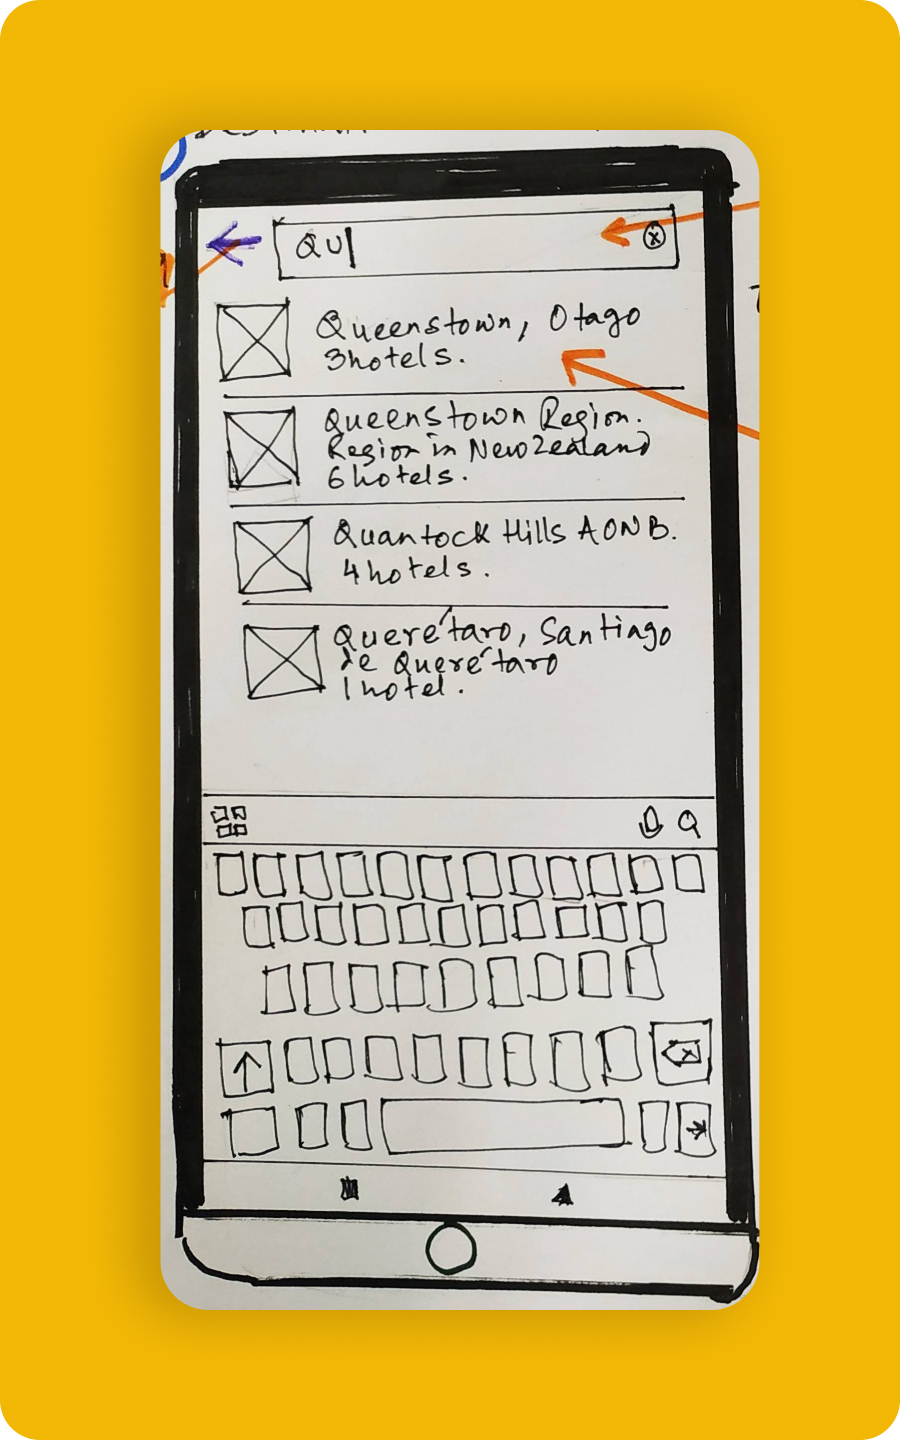 QU
Queenstown, Otago
3 hotels.
Queenstown Region.
Region in New Zealand
6 hotels.
Quantock Hills AONB.
4 hotels.
Querétaro, Santiago
de Querétaro
1 hotel.